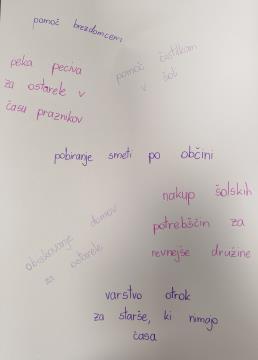 pomoč brezdomcem
peka peciva
za ostarele v
času praznikov
pomoč čistilkam
v šoli
pobiranje smeti po občini
nakup šolskih
potrebščin za
revnejše družine
obiskovanje domov
za ostarele
varstvo otrok
za starše, ki nimajo
časa